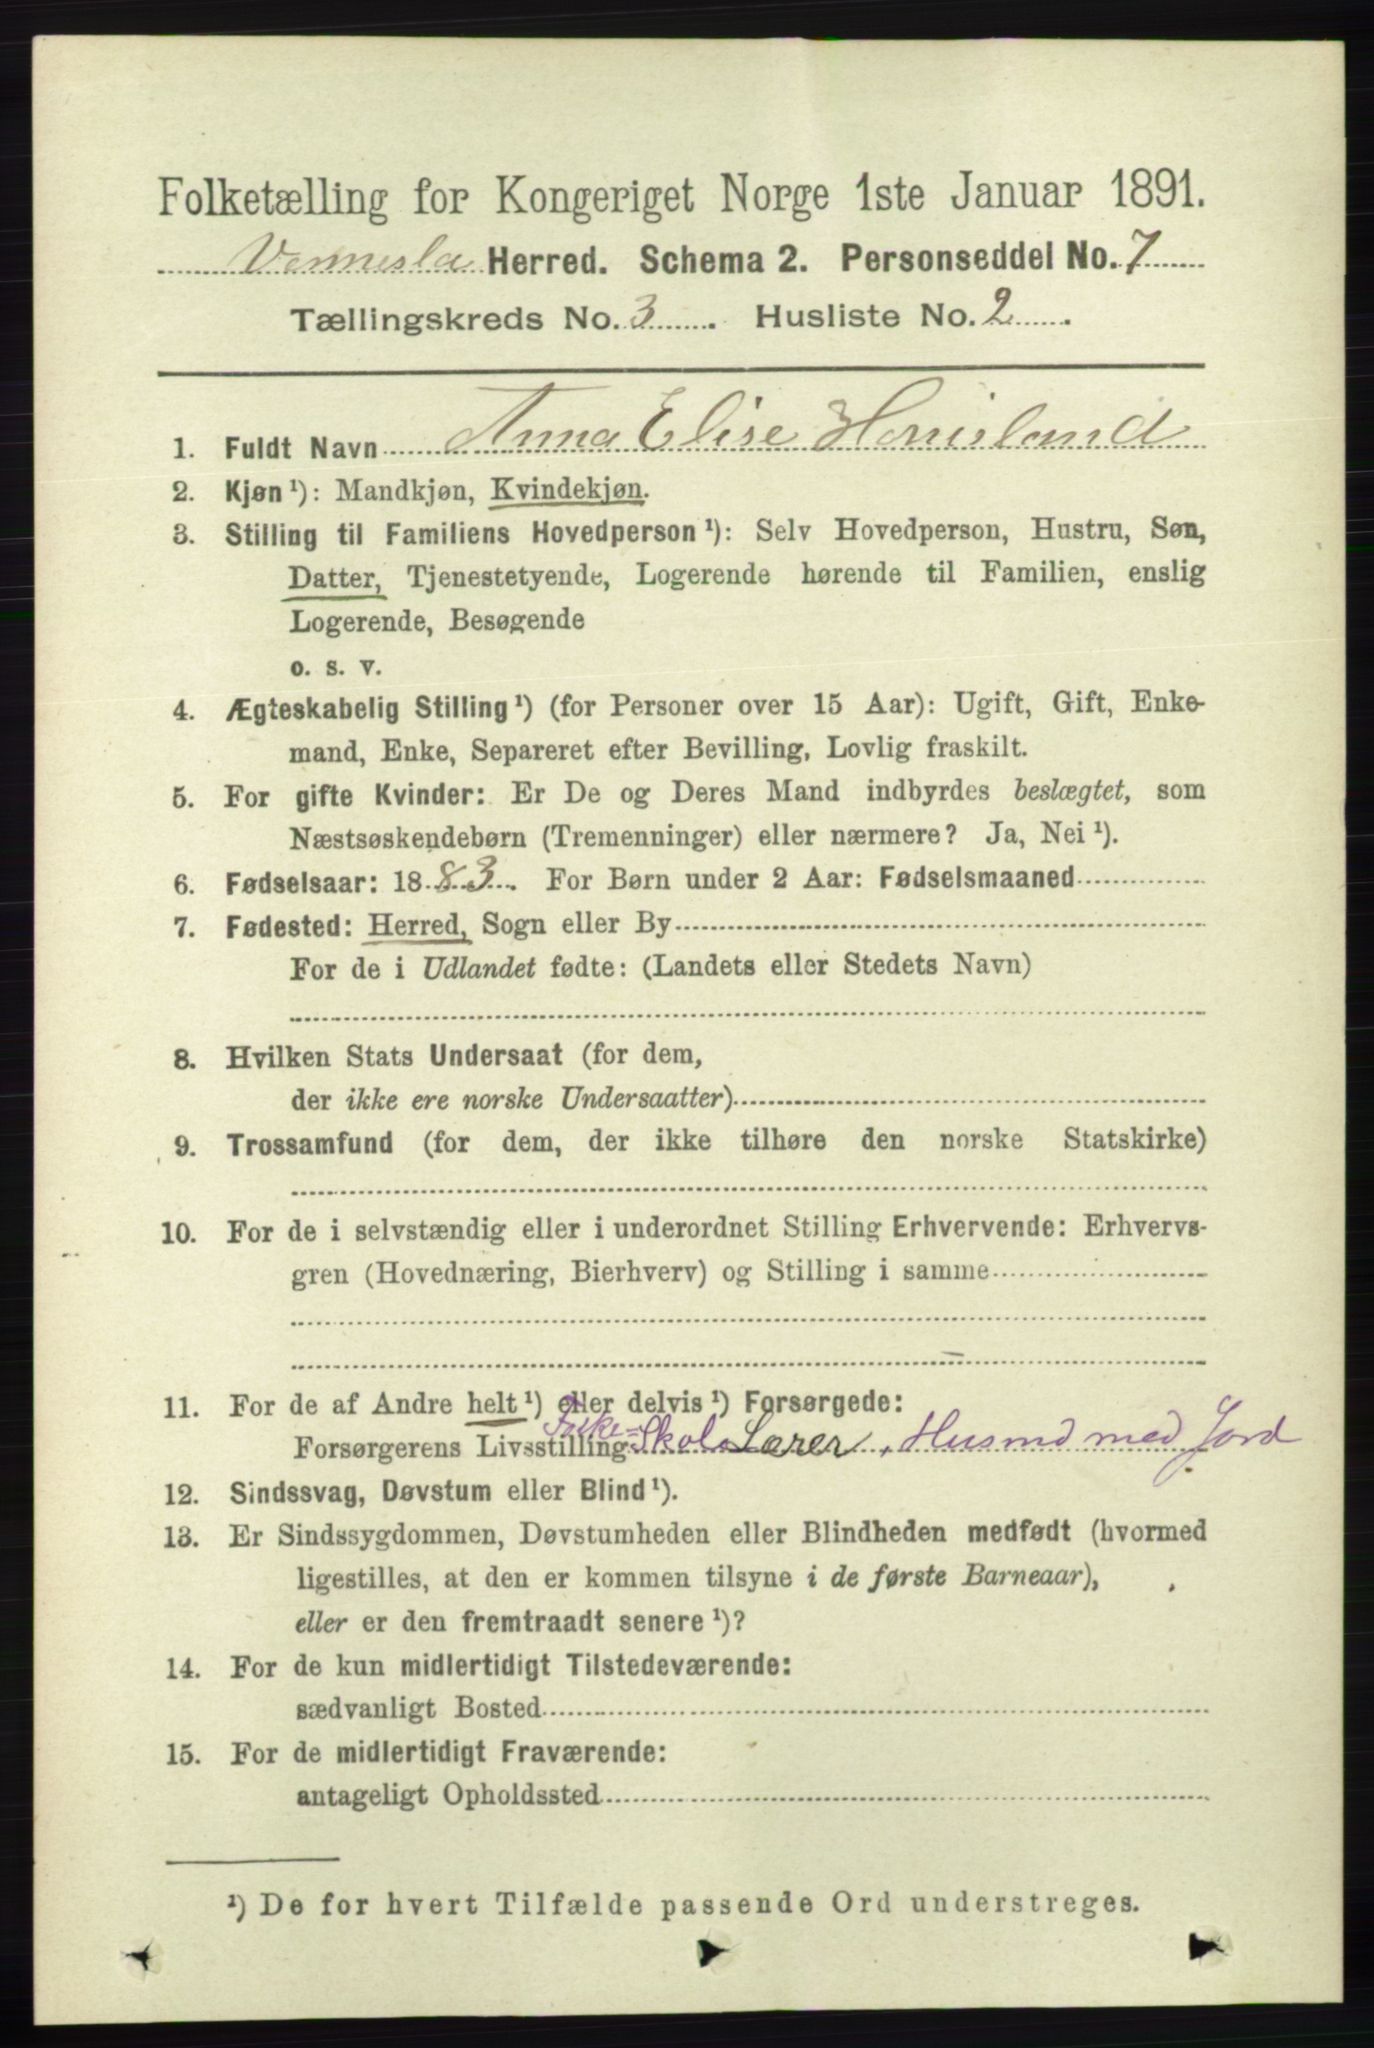 Folketælling for Kongeriget Norge 1ste Januar 1891.
Vennesla Herred. Schema 2. Personseddel No. 7
Tællingskreds No. 3. Husliste No. 2.
1. Fuldt Navn Anna Elise
2. Kjøn ¹): Mandkjøn, Kvindekjøn.
3. Stilling til Familiens Hovedperson ¹): Selv Hovedperson, Hustru, Søn,
Datter, Tjenestetyende, Logerende hørende til Familien, enslig
Logerende, Besøgende
o. s. v.
4. Ægteskabelig Stilling ¹) (for Personer over 15 Aar): Ugift, Gift, Enke-
mand, Enke, Separeret efter Bevilling, Lovlig fraskilt.
5. For gifte Kvinder: Er De og Deres Mand indbyrdes beslægtet, som
Næstsøskendebørn (Tremenninger) eller nærmere? Ja, Nei ¹).
6. Fødselsaar: 1883. For Børn under 2 Aar: Fødselsmaaned
7. Fødested: Herred, Sogn eller By
For de i Udlandet fødte: (Landets eller Stedets Navn)
8. Hvilken Stats Undersaat (for dem,
der ikke ere norske Undersaatter)
9. Trossamfund (for dem, der ikke tilhøre den norske Statskirke)
10. For de i selvstændig eller i underordnet Stilling Erhvervende: Erhvervs-
gren (Hovednæring, Bierhverv) og Stilling i samme
11. For de af Andre helt ¹) eller delvis ¹) Forsørgede:
Forsørgerens Livsstilling Folke=Skole Lærer, Husmd med Jord
12. Sindssvag, Døvstum eller Blind ¹).
13. Er Sindssygdommen, Døvstumheden eller Blindheden medfødt (hvormed
ligestilles, at den er kommen tilsyne i de første Barneaar),
eller er den fremtraadt senere ¹)?
14. For de kun midlertidigt Tilstedeværende:
sædvanligt Bosted
15. For de midlertidigt Fraværende:
antageligt Opholdssted
¹) De for hvert Tilfælde passende Ord understreges.